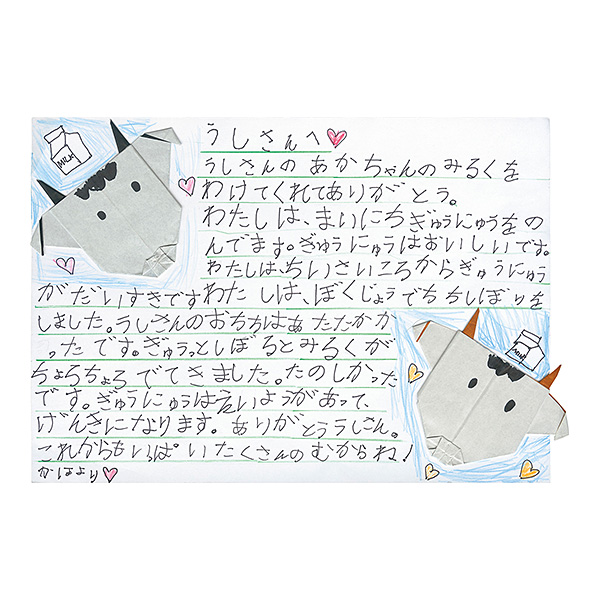 うしさんへ
うしさんの あかちゃんのみるくを
わけてくれてありがとう。
わたしは、まいにちぎゅうにゅうをの
んでます。ぎゅうにゅうはおいしいです。
わたしは、ちいさいころからぎゅうにゅう
がだいすきですわたしは、ぼくじょうでちちしぼりを
しました。うしさんのおちちはあたたかか
ったです。ぎゅうっとしぼるとみるくが
ちょろちょろでてきました。たのしかった
です。ぎゅうにゅうはえいようがあって、
げんきになります。ありがとううしさん。
これからもいっぱいたくさんのむからね!
かほより
MILK
MILK